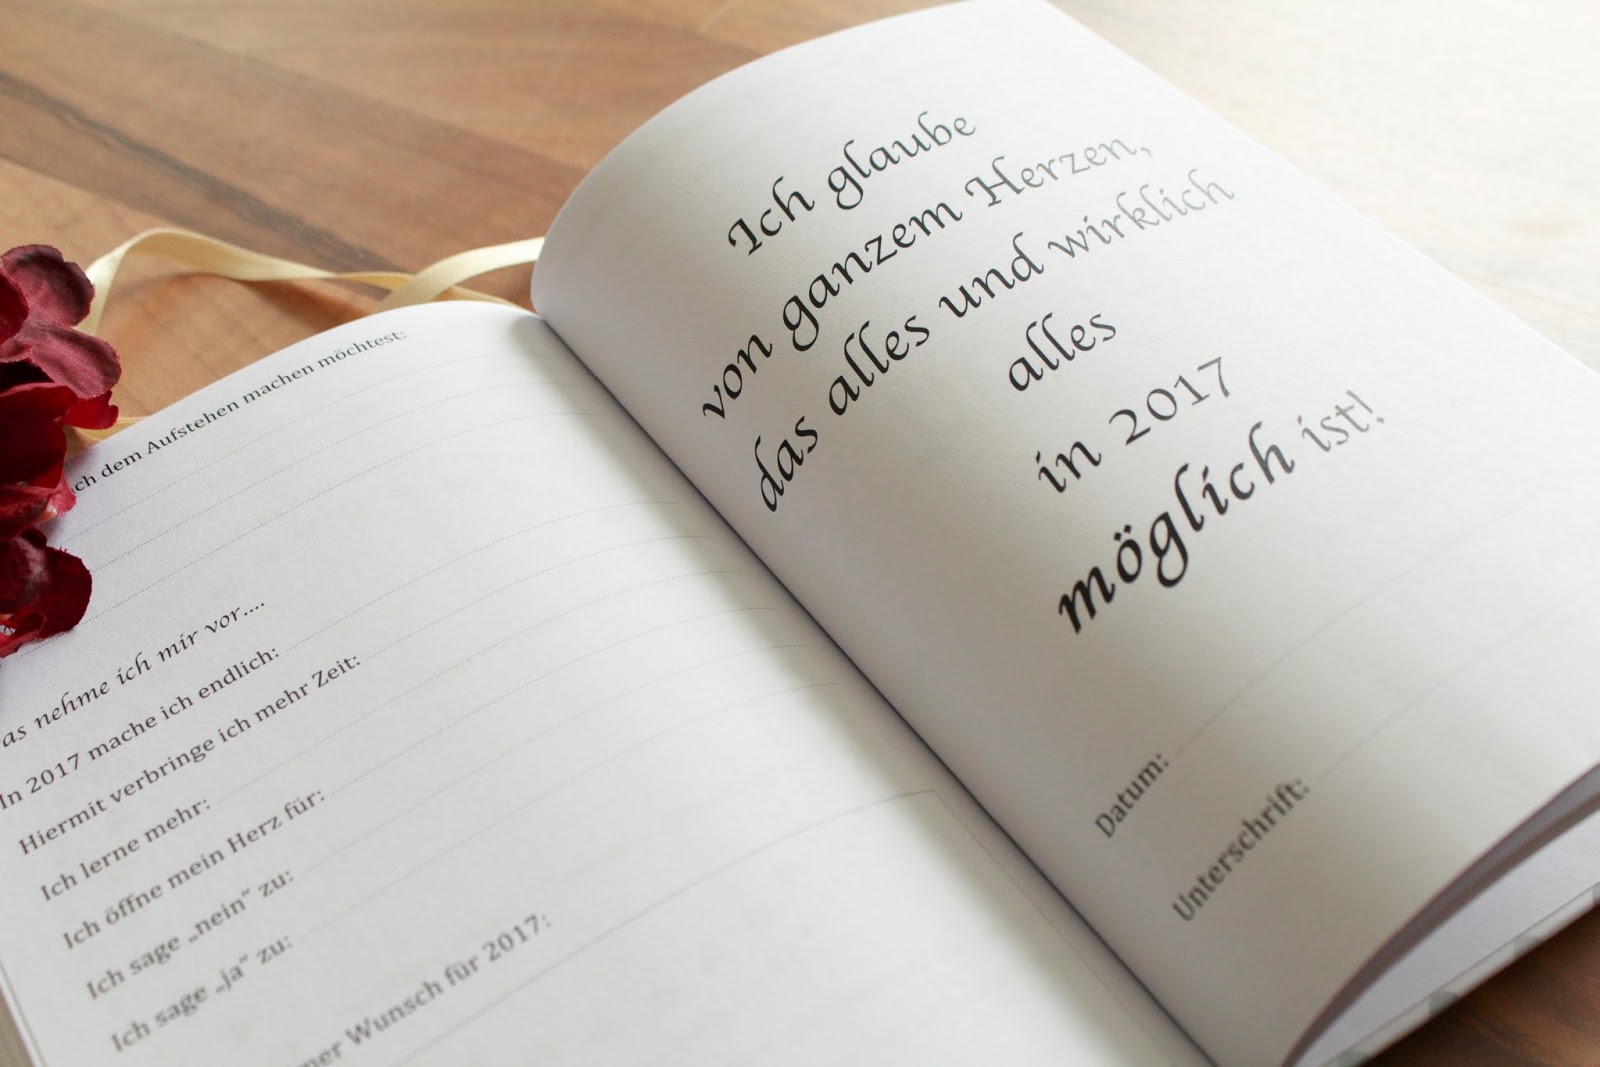 dem Aufstehen machen möchtest:
nehme ich mir vor....
In 2017 mache ich endlich:
Hiermit verbringe ich mehr Zeit:
Ich lerne mehr:
Ich öffne mein Herz für:
Ich sage „nein“ zu:
Ich sage „ja“ zu:
Wunsch für 2017:
Ich glaube
von ganzem Herzen,
das alles und wirklich
alles
in 2017
möglich ist!
Datum:
Unterschrift: